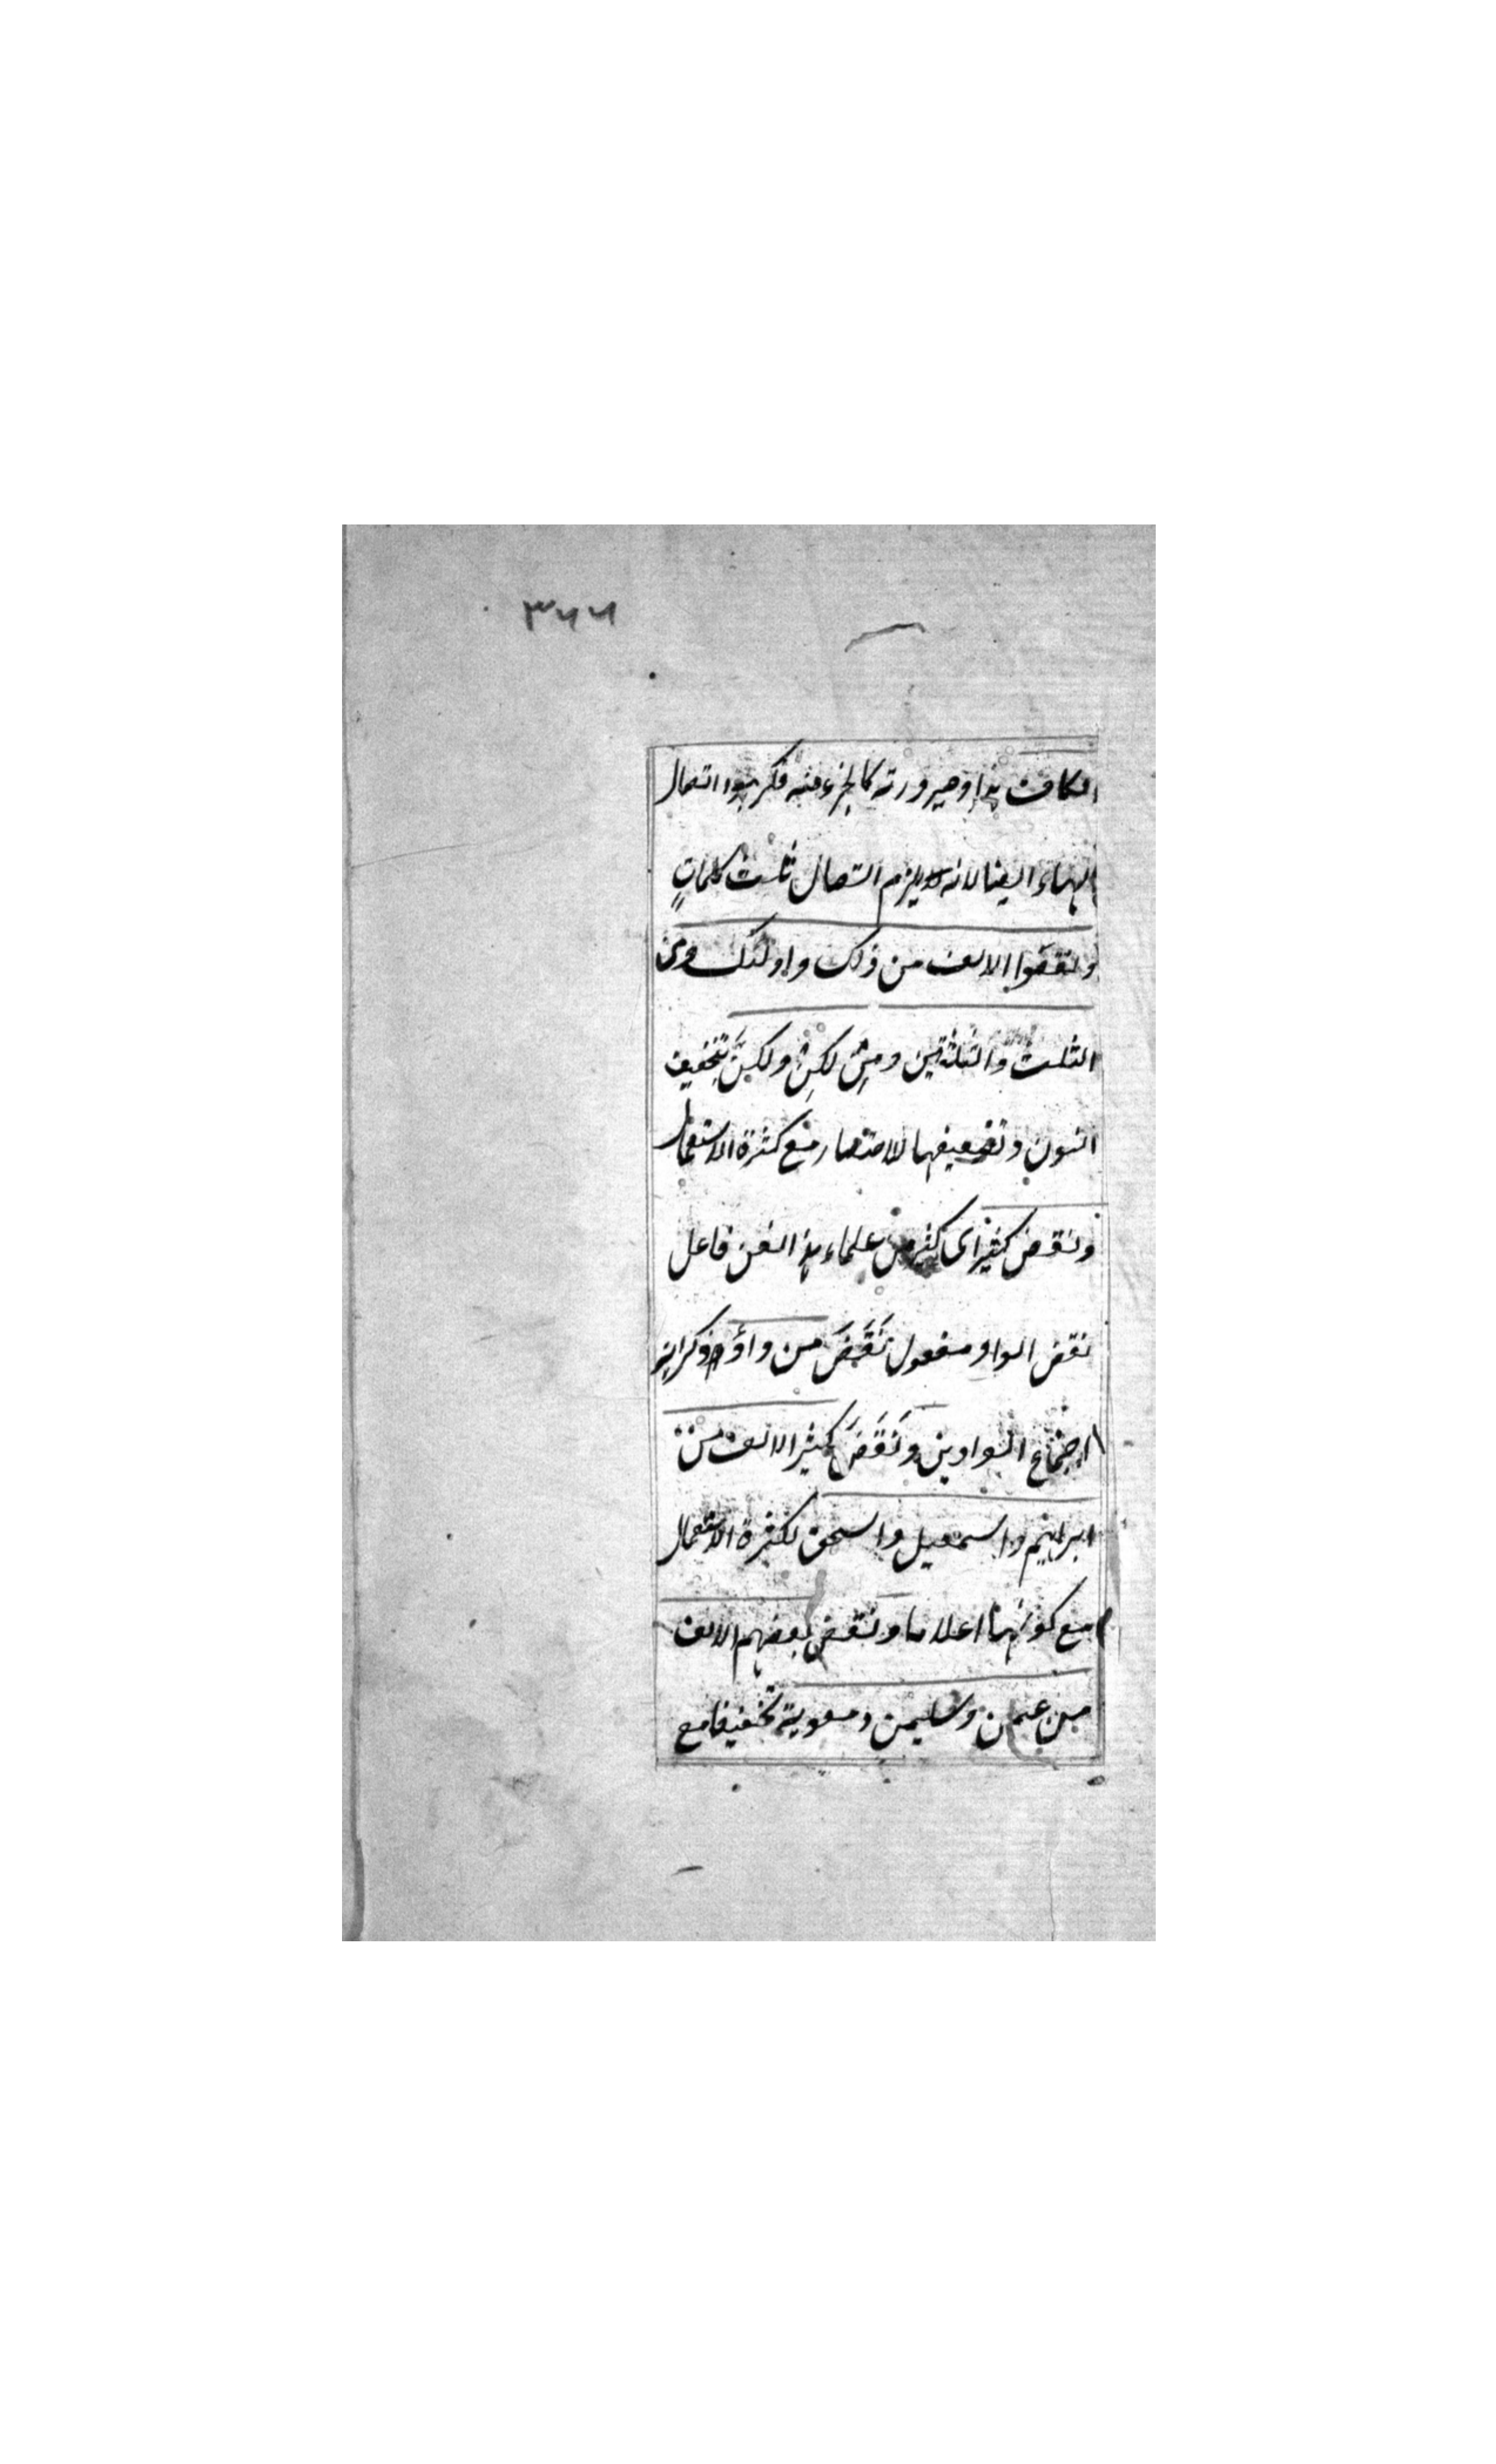 ٣٦٦
الكاف بذا وصيرورته كالجزء منه فكرهوا اتصال
الهاء ايضا لانه يلزم اتصال ثلث كلمات
ونقصوا الالف من ذلك واولئك ومن
الثلث والثلثين ومن لكن ولكنّ بتخفيف
النون وتضعيفها للاختصار مع كثرة الاستعمال
ونقص كثيرا اى كثير من علماء هذا الفن فاعل
نقص الواو مفعول نَقَصَ من داؤد وكراهة
اجتماع الواوين ونَقَصَ كثير الالف من
ابرهيم واسمعيل واسحق لكثرة الاستعمال
مع كونها اعلاما ونقص بعضهم الالف
من عثمن وسليمن ومعوية تخفيفا مع